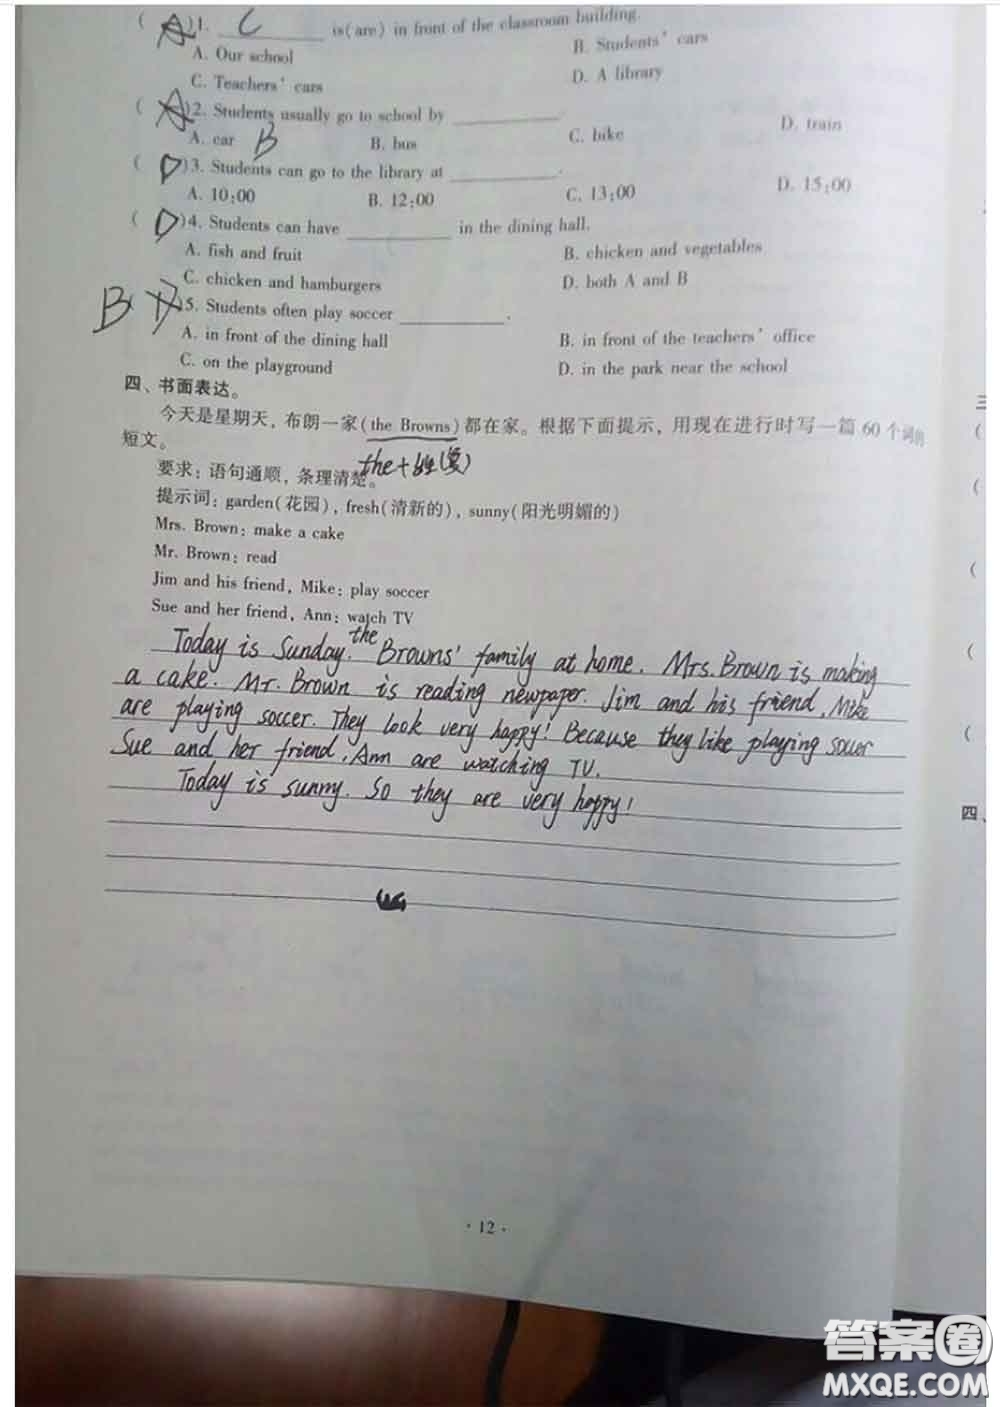 ( A )1. C is(are) in front of the classroom building.
A. Our school B. Students' cars
C. Teachers' cars D. A library
( A )2. Students usually go to school by
A. car B B. bus C. bike D. train
( D )3. Students can go to the library at .
A. 10:00 B. 12:00 C. 13:00 D. 15:00
( D )4. Students can have in the dining hall.
A. fish and fruit B. chicken and vegetables
C. chicken and hamburgers D. both A and B
B )5. Students often play soccer .
A. in front of the dining hall B. in front of the teachers' office
C. on the playground D. in the park near the school
四、书面表达。
今天是星期天，布朗一家(the Browns)都在家。根据下面提示，用现在进行时写一篇 60 个词的
短文。
要求：语句通顺，条理清楚。 the+姓(复)
提示词：garden(花园)，fresh(清新的)，sunny(阳光明媚的)
Mrs. Brown: make a cake
Mr. Brown: read
Jim and his friend, Mike: play soccer
Sue and her friend, Ann: watch TV
Today is Sunday. the Browns' family at home. Mrs. Brown is making
a cake. Mr. Brown is reading newpaper. Jim and his friend, Mike
are playing soccer. They look very happy! Because they like playing
Sue and her friend, Ann are watching TV.
Today is sunny. So they are very happy!
· 12 ·
三
(
(
(
(
(
四、
答案圈
MXQE.COM